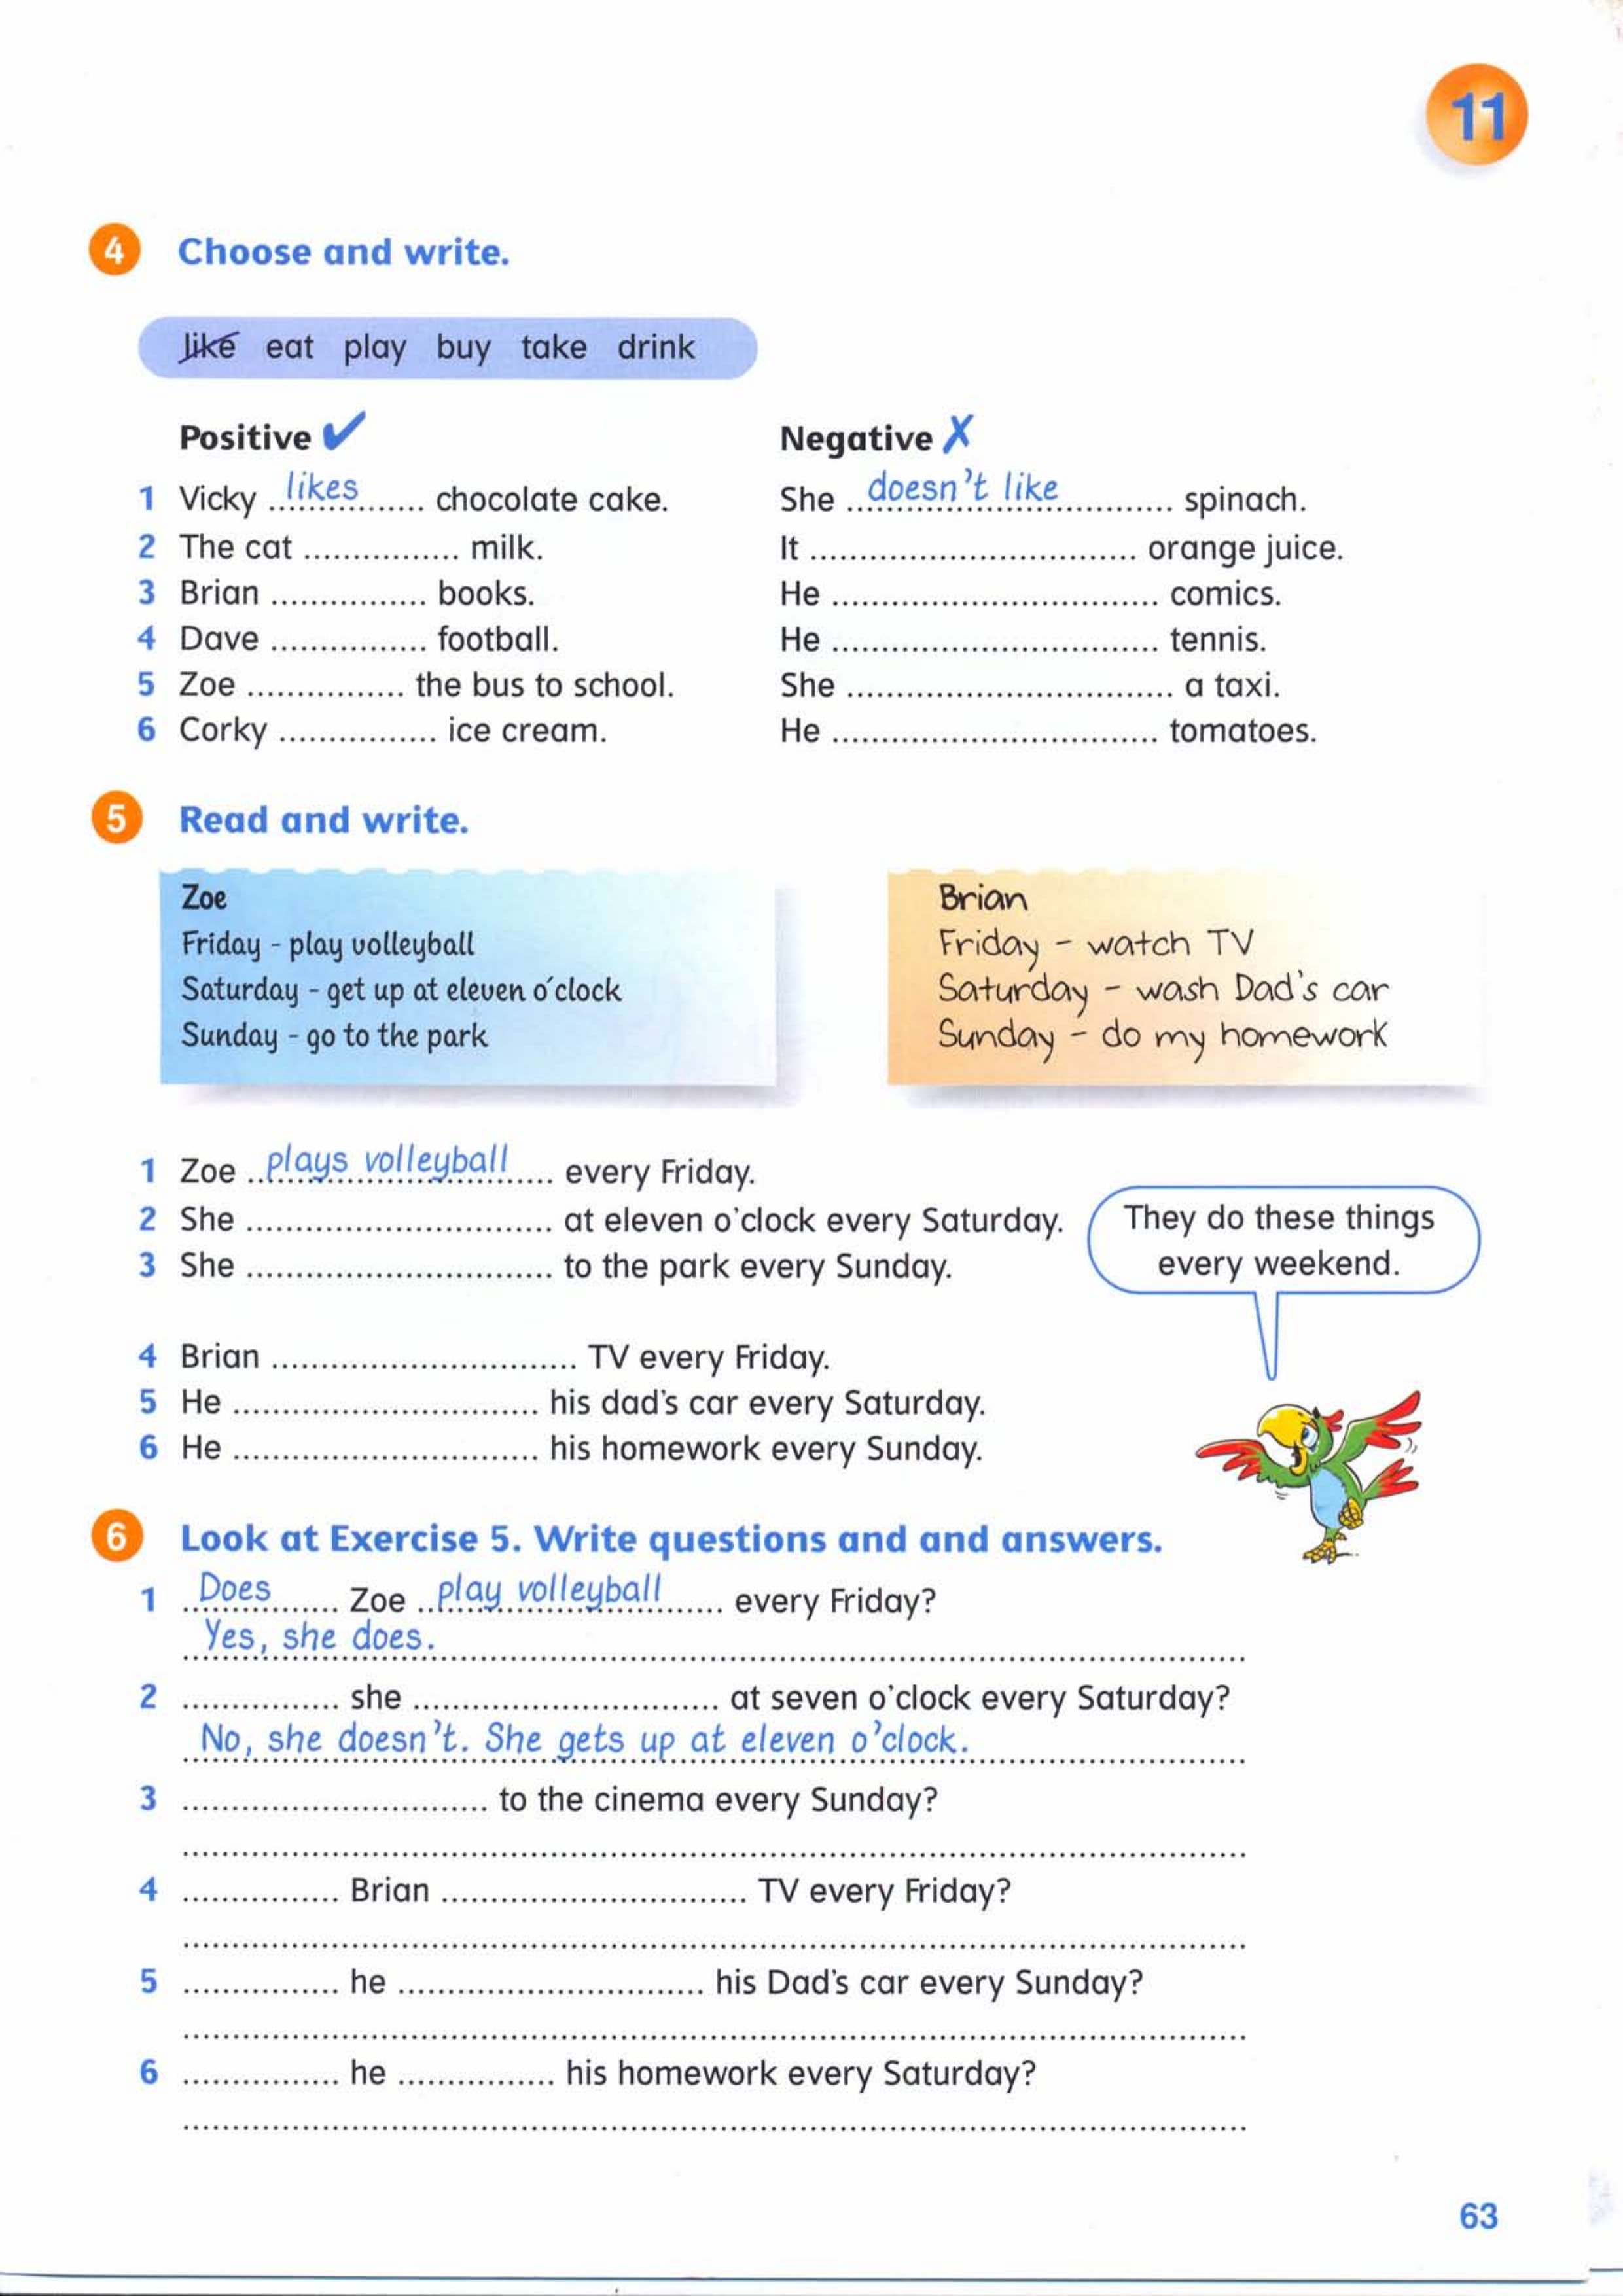 11
4 Choose and write.
like eat play buy take drink
Positive ✔ Negative ✗
1 Vicky likes chocolate cake. She doesn't like spinach.
2 The cat ................ milk. It ................................. orange juice.
3 Brian ................ books. He ................................. comics.
4 Dave ................ football. He ................................. tennis.
5 Zoe ................ the bus to school. She ................................. a taxi.
6 Corky ................ ice cream. He ................................. tomatoes.
5 Read and write.
Zoe
Friday - play volleyball
Saturday - get up at eleven o'clock
Sunday - go to the park
Brian
Friday - watch TV
Saturday - wash Dad's car
Sunday - do my homework
1 Zoe plays volleyball every Friday.
2 She ............................... at eleven o'clock every Saturday.
3 She ............................... to the park every Sunday.
They do these things
every weekend.
4 Brian ............................... TV every Friday.
5 He ............................... his dad's car every Saturday.
6 He ............................... his homework every Sunday.
6 Look at Exercise 5. Write questions and and answers.
1 Does Zoe play volleyball every Friday?
Yes, she does.
2 ................ she ............................... at seven o'clock every Saturday?
No, she doesn't. She gets up at eleven o'clock.
3 ............................... to the cinema every Sunday?
4 ................ Brian ............................... TV every Friday?
5 ................ he ............................... his Dad's car every Sunday?
6 ................ he ................ his homework every Saturday?
63